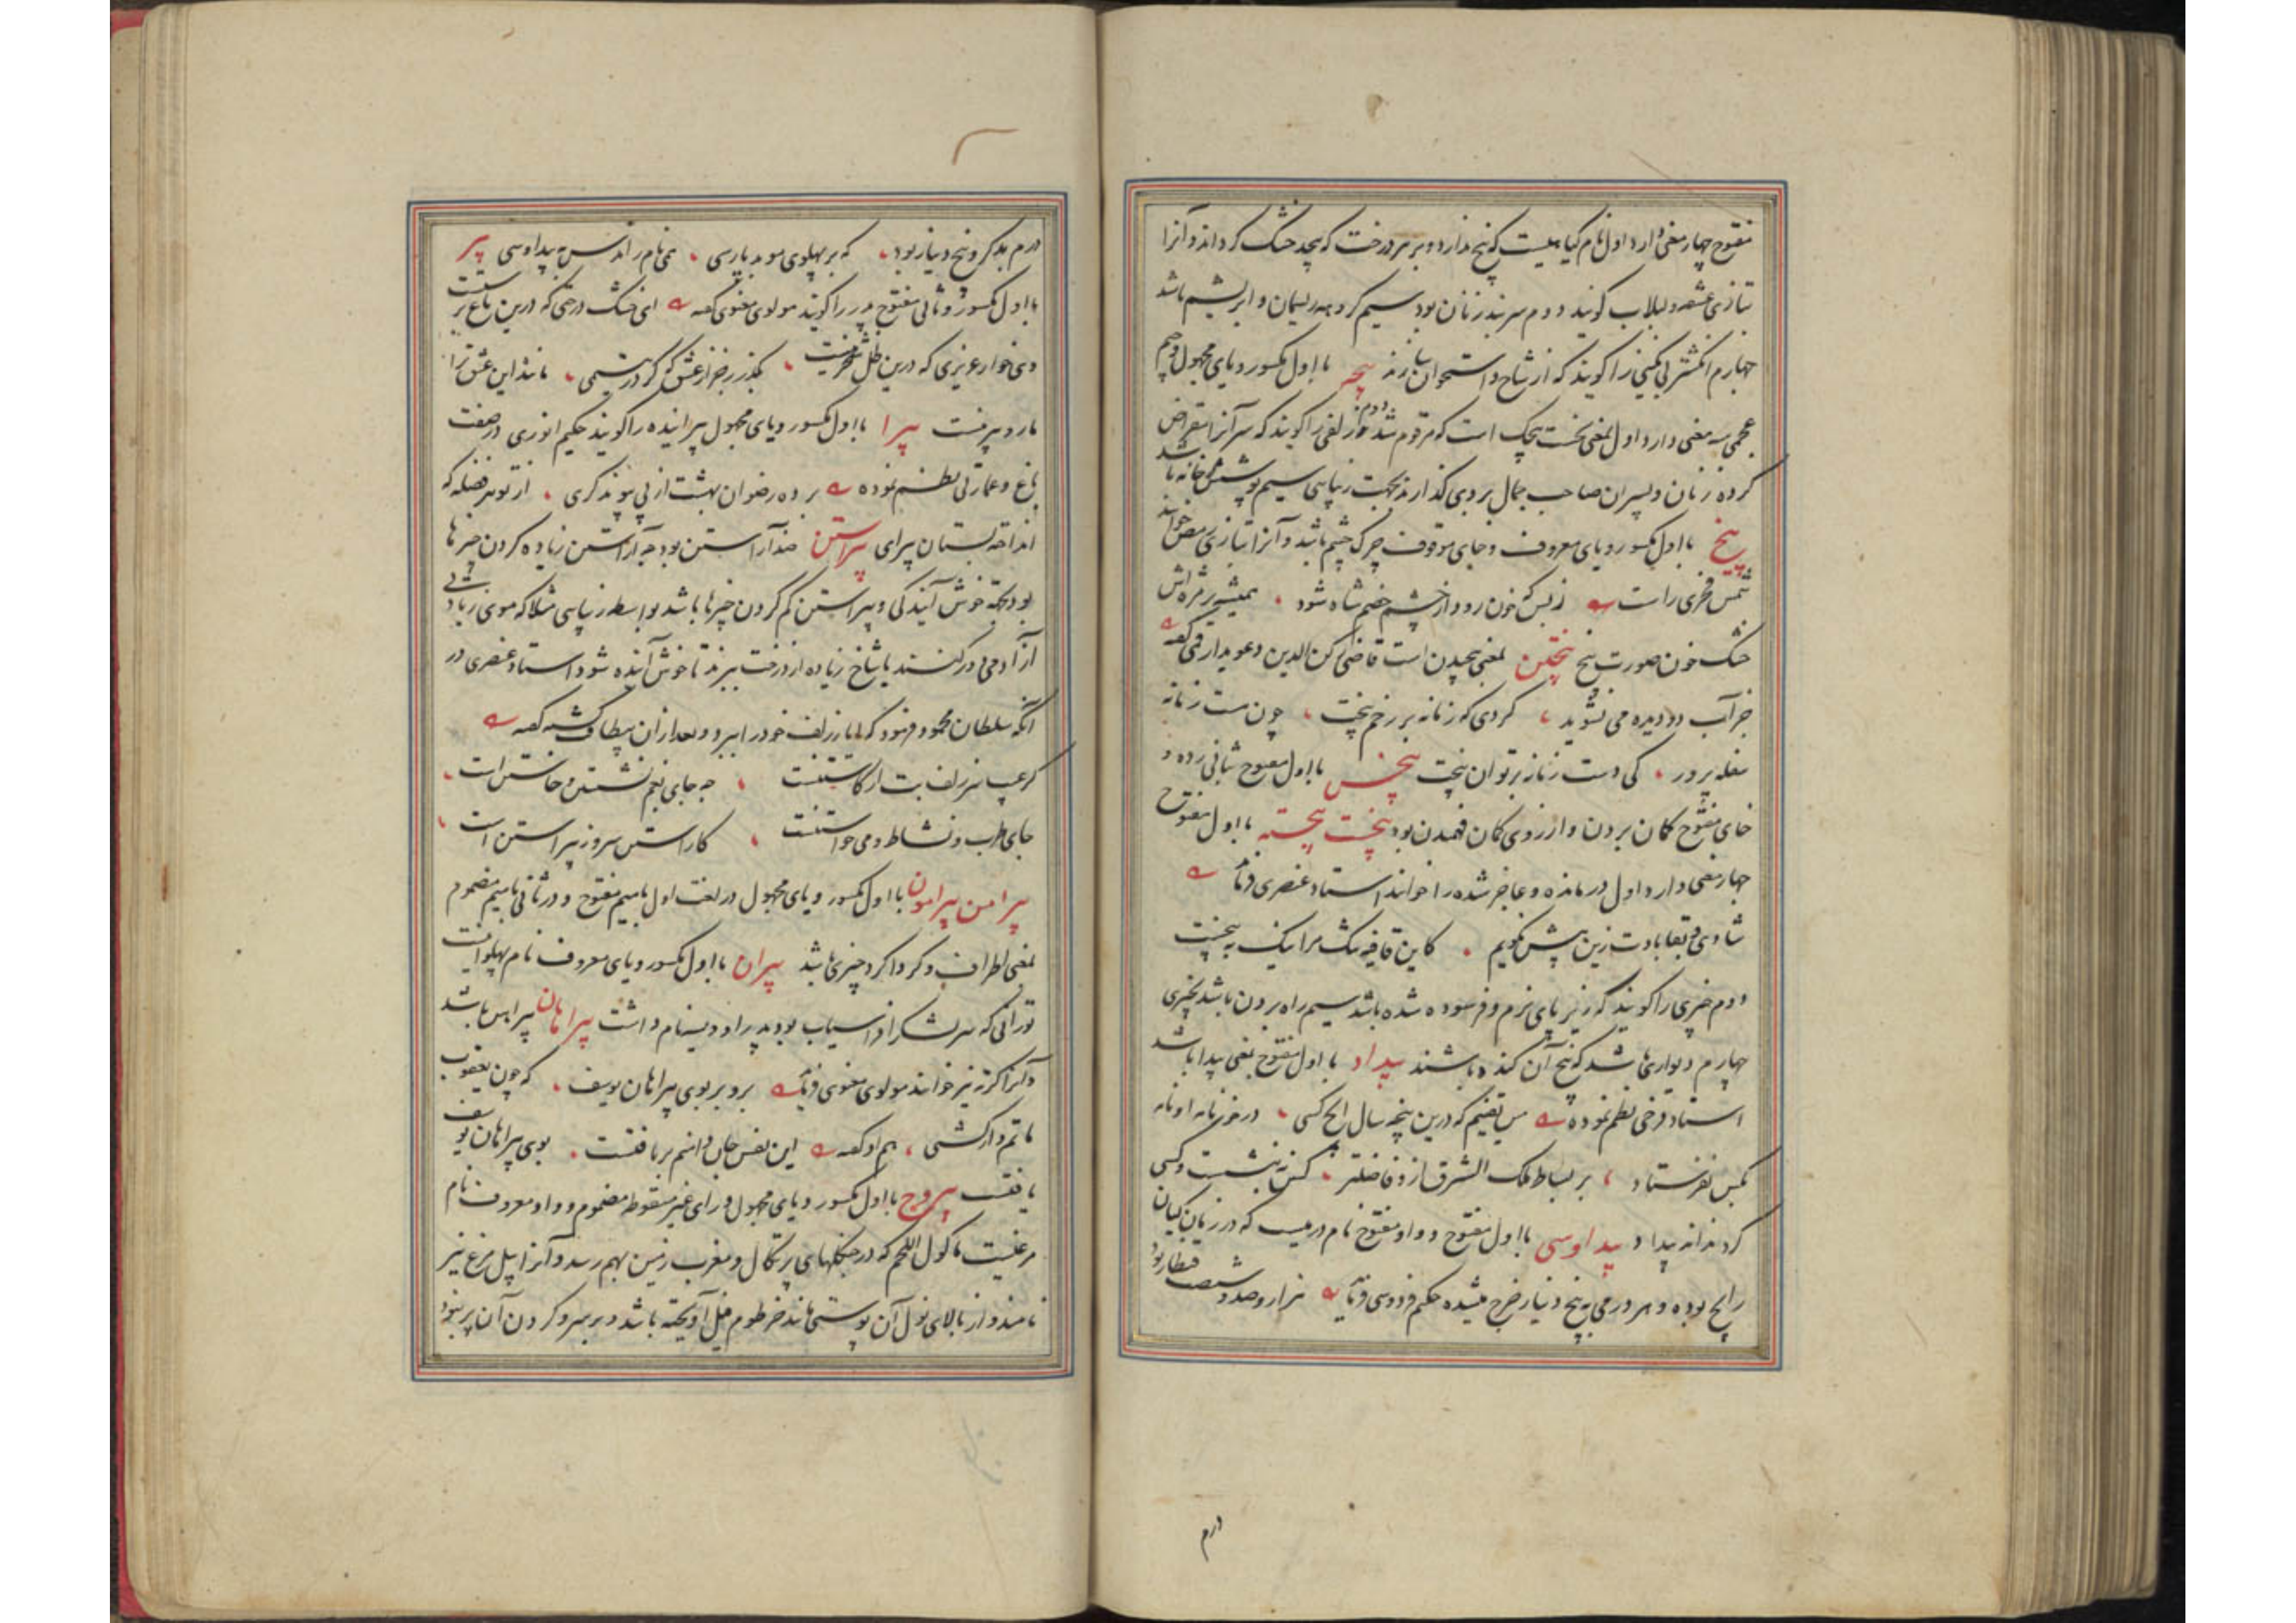 مفتوح چهار معنی دارد اول نام گیاهیست که بیخ ندارد و بر هر درخت که پیچد خشک گرداند و آنرا
بتازی عشقه و لبلاب گویند دوم سربند زنان بود سیم گروهه ریسمان و ابریشم باشد
چهارم انگشتر بی نگینی را گویند که از شاخ و استخوان سازند با اول مکسور و یای مجهول و جیم
عجمی سه معنی دارد اول بمعنی نخست پیچک است که مرقوم شد دوم زلفی را گویند که سر آنرا مقراض
کرده زنان و پسران صاحب جمال بر روی گذارند بجهت زیبایی سیم پوشش خانه باشد
پیخ با اول مکسور و یای معروف و خای موقوف چرک چشم باشد و آنرا بتازی رمص خوانند
شمس فخری راست ز بس که خون رود از چشم خصم شاه شود همیشه بر مژه اش
خشک خون صورت پیخ پیختن بمعنی پیچیدن است قاضی رکن الدین دعویدار قمی گفته
جز آب دو دیده می نشوید گردی که زمانه بر رخم پیخت چون مست زمانه
سفله پرور کی دست زمانه بر توان پیخت پیخس با اول مفتوح بثانی زده و
خای مفتوح گمان بردن و از روی گمان فهمیدن بود پیخست پیخسته با اول مفتوح
چهار معنی دارد اول درمانده و عاجز شده را خوانند استاد عنصری فرماید
شادی و بقا بادت زین بیش نگویم کاین قافیه تنگ مرا نیک به پیخست
دوم چیزی را گویند که زیر پای نرم و فرسوده شده باشد سیم راه بردن باشد بچیزی
چهارم دیواری باشد که بیخ آن کنده باشند پیداد با اول مفتوح بمعنی پیدا باشد
استاد فرخی نظم نموده من یقینم که درین پنجه سال ایچ کسی در خزانه او نه
بکس نفرستاد بر بساط ملک الشرق ازو فاضلتر کس بننشست و کسی
کرد ندانه پیداد پیداوسی با اول مفتوح و واو مفتوح نام درمیست که در زمان کیان
رایج بوده و هر درمی به پنج دینار خرج میشده حکیم فردوسی فرماید هزار و صد و شصت قنطار بود
درم
درم بد کز و پنج دینار بود که بر پهلوی موبد پارسی همی نام راندش به پیداوسی پیر
با اول مکسور و ثانی مفتوح پدر را گویند مولوی معنوی گفته ای خنک درختی که درین باغ بر
وی خوار عزیزی که درین ظل بگذر ز خزان گر مانند این عشق ترا
مار و پیر پیرا با اول مکسور و یای مجهول پیراینده را گویند حکیم انوری در صفت
باغ و عمارتی نظم نموده برده رضوان بهشت از پی پیوند گری از تو هر فضله که
انداخته بستان پیرای پیراستن ضد آراستن بود چه آراستن زیاده کردن چیزها
بود بجهة خوش آیندگی و پیراستن کم کردن چیزها باشد بواسطه زیبایی مثلا که موی زیادتی
از آدمی دور کنند یا شاخ زیاده از درخت ببرند تا خوش آینده شود استاد عنصری در
آنگه سلطان محمود فرمود که ایاز زلف خود را ببرد و بعد از آن بیطاقت گشته گفته
گر عیب سر زلف بت از کاستنست چه جای بغم نشستن و خاستن است
جای طرب و نشاط و می خواستنست کاراستن سرو ز پیراستن است
پیرامن پیرامون با اول مکسور و یای مجهول در لغت اول با میم مفتوح و در ثانی با میم مضموم
بمعنی اطراف و گرداگرد چیزی باشد پیران با اول مکسور و یای معروف نام پهلوانیست
تورانی که سر لشکر افراسیاب بود و پدر او ویسه نام داشت پیراهان پیراهن باشد
و آنرا کرته نیز خوانند مولوی معنوی فرماید برو بر بوی پیراهان یوسف که چون یعقوب
ماتم دار گشتی هم او گفته این نفس جان دامنم بر تافتست بوی پیراهان یوسف
یافتست پیروج با اول مکسور و یای مجهول و رای غیر منقوطه مضموم و واو معروف نام
مرغیست ماکول اللحم که در جنگلهای پرتکال و مغرب زمین بهم رسد و آنرا پیل مرغ نیز
نامند و از بالای نول آن پوستی مانند خرطوم فیل آویخته باشد و بر سر و گردن آن پر نبود